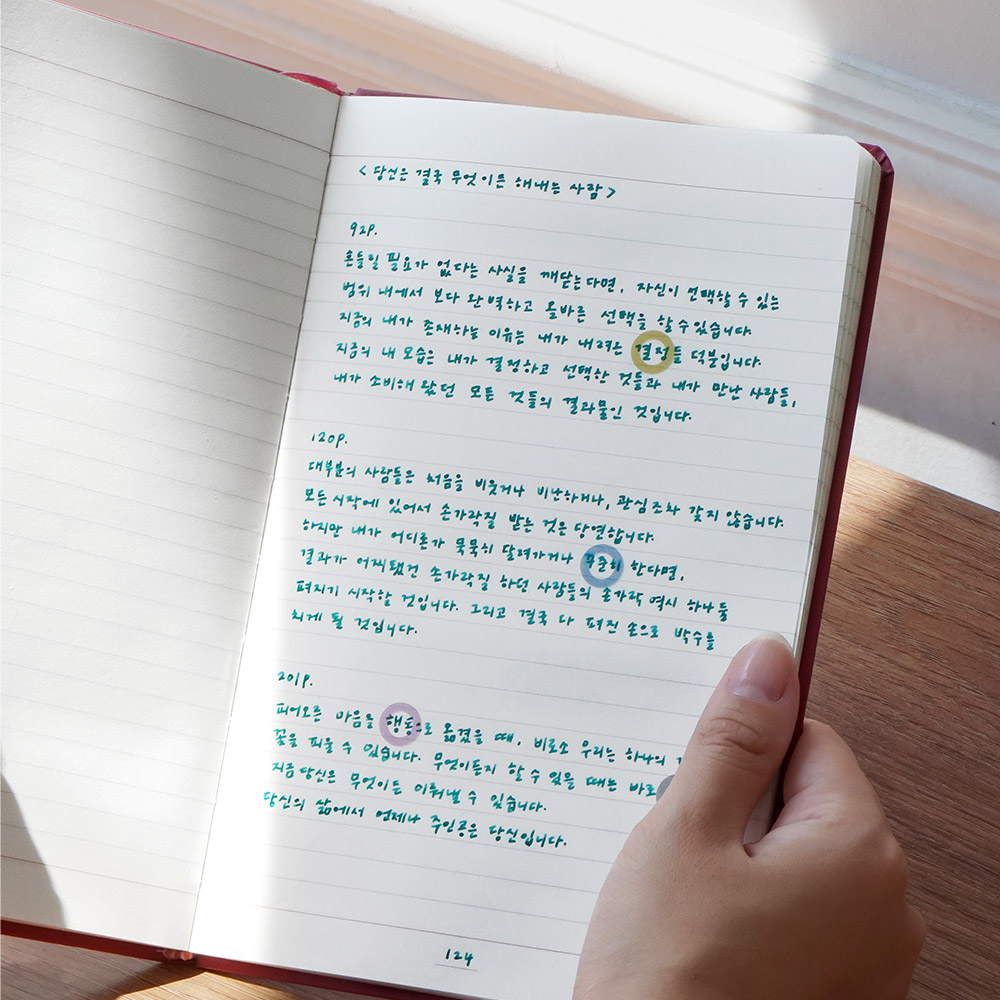 <당신은 결국 무엇이든 해내는 사람>
92P.
흔들릴 필요가 없다는 사실을 깨닫는다면, 자신이 선택할 수 있는
범위 내에서 보다 완벽하고 올바른 선택을 할 수 있습니다.
지금의 내가 존재하는 이유는 내가 내려온 결정들 덕분입니다.
지금의 내 모습은 내가 결정하고 선택한 것들과 내가 만난 사람들,
내가 소비해 왔던 모든 것들의 결과물인 것입니다.
120P.
대부분의 사람들은 처음을 비웃거나 비난하거나, 관심조차 갖지 않습니다.
모든 시작에 있어서 손가락질 받는 것은 당연합니다.
하지만 내가 어디론가 묵묵히 달려가거나 꾸준히 한다면,
결과가 어찌됐건 손가락질 하던 사람들의 손가락 역시 하나 둘
펴지기 시작할 것입니다. 그리고 결국 다 펴진 손으로 박수를
치게 될 것입니다.
201P.
피어오른 마음을 행동으로 옮겼을 때, 비로소 우리는 하나의
꽃을 피울 수 있습니다. 무엇이든지 할 수 있을 때는 바로
지금 당신은 무엇이든 이뤄낼 수 있습니다.
당신의 삶에서 언제나 주인공은 당신입니다.
124